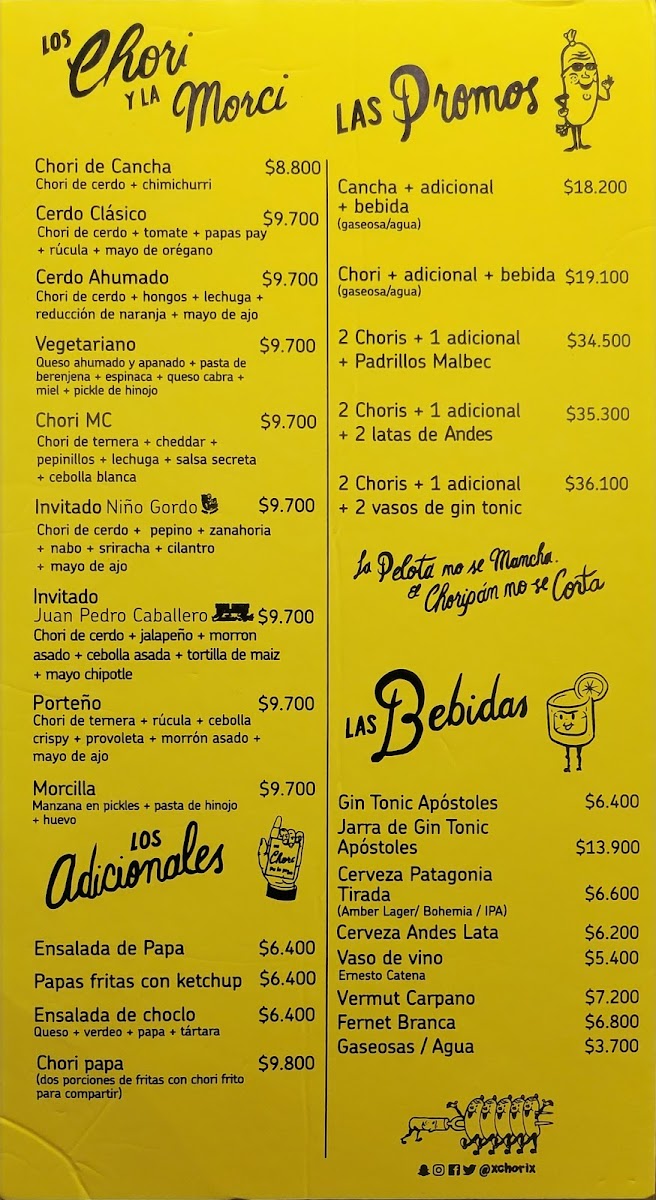 LOS Chori
Y LA Morci
Chori de Cancha $8.800
Chori de cerdo + chimichurri
Cerdo Clásico $9.700
Chori de cerdo + tomate + papas pay
+ rúcula + mayo de orégano
Cerdo Ahumado $9.700
Chori de cerdo + hongos + lechuga +
reducción de naranja + mayo de ajo
Vegetariano $9.700
Queso ahumado y apanado + pasta de
berenjena + espinaca + queso cabra +
miel + pickle de hinojo
Chori MC $9.700
Chori de ternera + cheddar +
pepinillos + lechuga + salsa secreta
+ cebolla blanca
Invitado Niño Gordo $9.700
Chori de cerdo + pepino + zanahoria
+ nabo + sriracha + cilantro
+ mayo de ajo
Invitado
Juan Pedro Caballero $9.700
Chori de cerdo + jalapeño + morron
asado + cebolla asada + tortilla de maiz
+ mayo chipotle
Porteño $9.700
Chori de ternera + rúcula + cebolla
crispy + provoleta + morrón asado +
mayo de ajo
Morcilla $9.700
Manzana en pickles + pasta de hinojo
+ huevo
LOS
Adicionales
Chori
Ensalada de Papa $6.400
Papas fritas con ketchup $6.400
Ensalada de choclo $6.400
Queso + verdeo + papa + tártara
Chori papa $9.800
(dos porciones de fritas con chori frito
para compartir)
LAS Promos
Cancha + adicional $18.200
+ bebida
(gaseosa/agua)
Chori + adicional + bebida $19.100
(gaseosa/agua)
2 Choris + 1 adicional $34.500
+ Padrillos Malbec
2 Choris + 1 adicional $35.300
+ 2 latas de Andes
2 Choris + 1 adicional $36.100
+ 2 vasos de gin tonic
La Pelota no se Mancha.
el Choripán no se Corta
LAS Bebidas
Gin Tonic Apóstoles $6.400
Jarra de Gin Tonic
Apóstoles $13.900
Cerveza Patagonia
Tirada $6.600
(Amber Lager/ Bohemia / IPA)
Cerveza Andes Lata $6.200
Vaso de vino $5.400
Ernesto Catena
Vermut Carpano $7.200
Fernet Branca $6.800
Gaseosas / Agua $3.700
@xchorix